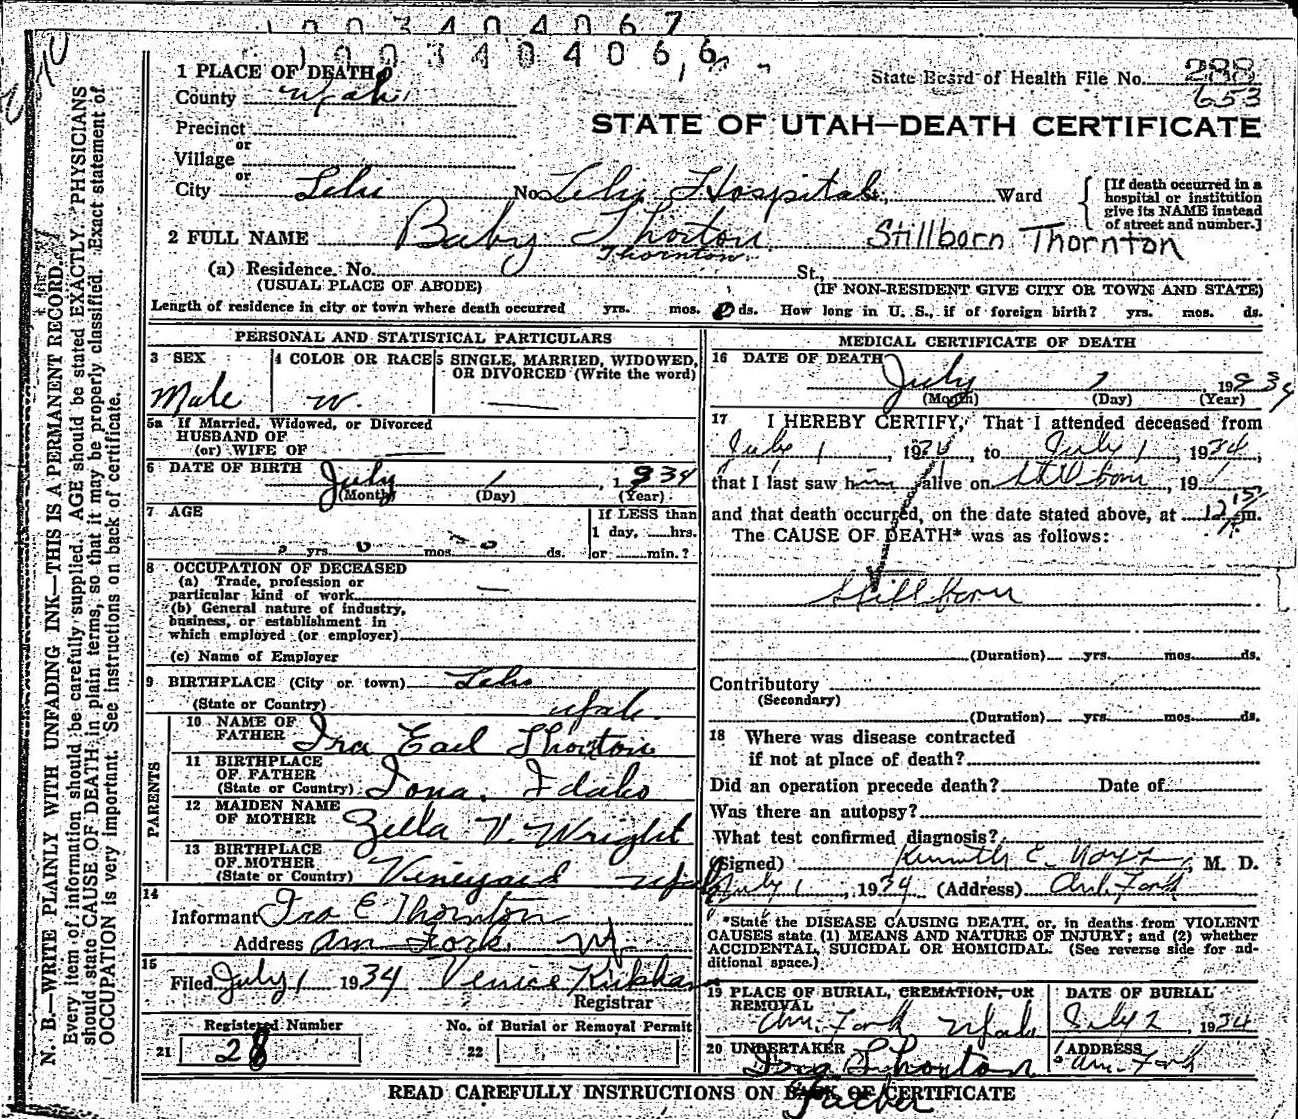 1 0 0 3 4 0 4 0 6 7
1 0 0 3 4 0 4 0 6 6
1 PLACE OF DEATH
State Board of Health File No. 288
653
County Utah
STATE OF UTAH—DEATH CERTIFICATE
Precinct
or
Village
or
City Lehi No. Lehi Hospital St., Ward
[If death occurred in a hospital or institution give its NAME instead of street and number.]
2 FULL NAME Baby Thorton Stillborn Thornton
Thornton
(a) Residence. No. St.,
(USUAL PLACE OF ABODE) (IF NON-RESIDENT GIVE CITY OR TOWN AND STATE)
Length of residence in city or town where death occurred yrs. mos. 0 ds. How long in U. S., if of foreign birth? yrs. mos. ds.
PERSONAL AND STATISTICAL PARTICULARS
3 SEX 4 COLOR OR RACE 5 SINGLE, MARRIED, WIDOWED,
OR DIVORCED (Write the word)
Male W. —
5a If Married, Widowed, or Divorced
HUSBAND OF
(or) WIFE OF —
6 DATE OF BIRTH
July 1, 1934
(Month) (Day) (Year)
7 AGE If LESS than
1 day, hrs.
yrs. 0 mos. 0 ds. or min.?
8 OCCUPATION OF DECEASED
(a) Trade, profession or
particular kind of work —
(b) General nature of industry,
business, or establishment in
which employed (or employer)
(c) Name of Employer
9 BIRTHPLACE (City or town) Lehi
(State or Country) Utah.
PARENTS
10 NAME OF
FATHER Ira Earl Thorton
11 BIRTHPLACE
OF FATHER
(State or Country) Iona, Idaho
12 MAIDEN NAME
OF MOTHER Zella V. Wright
13 BIRTHPLACE
OF MOTHER
(State or Country) Vineyard Utah
14
Informant Ira E Thornton
Address Am Fork Ut
15
Filed July 1 1934 Venice Kirkham
Registrar
Registered Number No. of Burial or Removal Permit
21 28 22
MEDICAL CERTIFICATE OF DEATH
16 DATE OF DEATH
July 1, 1934
(Month) (Day) (Year)
17 I HEREBY CERTIFY, That I attended deceased from
July 1, 1934, to July 1, 1934,
that I last saw him alive on Stillborn, 19
and that death occurred, on the date stated above, at 12 15 P.m.
The CAUSE OF DEATH* was as follows:
Stillborn
(Duration) yrs. mos. ds.
Contributory
(Secondary)
(Duration) yrs. mos. ds.
18 Where was disease contracted
if not at place of death?
Did an operation precede death? Date of
Was there an autopsy?
What test confirmed diagnosis?
(Signed) Kenneth E. Noyes, M. D.
July 1, 1934 (Address) Am. Fork
*State the DISEASE CAUSING DEATH, or, in deaths from VIOLENT
CAUSES state (1) MEANS AND NATURE OF INJURY; and (2) whether
ACCIDENTAL, SUICIDAL OR HOMICIDAL. (See reverse side for ad-
ditional space.)
19 PLACE OF BURIAL, CREMATION, OR
REMOVAL
DATE OF BURIAL
Am. Fork Utah July 2, 1934
20 UNDERTAKER ADDRESS
Ira Thorton Am. Fork
Father
READ CAREFULLY INSTRUCTIONS ON BACK OF CERTIFICATE
N. B.—WRITE PLAINLY WITH UNFADING INK—THIS IS A PERMANENT RECORD
Every item of information should be carefully supplied. AGE should be stated EXACTLY. PHYSICIANS
should state CAUSE OF DEATH in plain terms, so that it may be properly classified. Exact statement of
OCCUPATION is very important. See instructions on back of certificate.